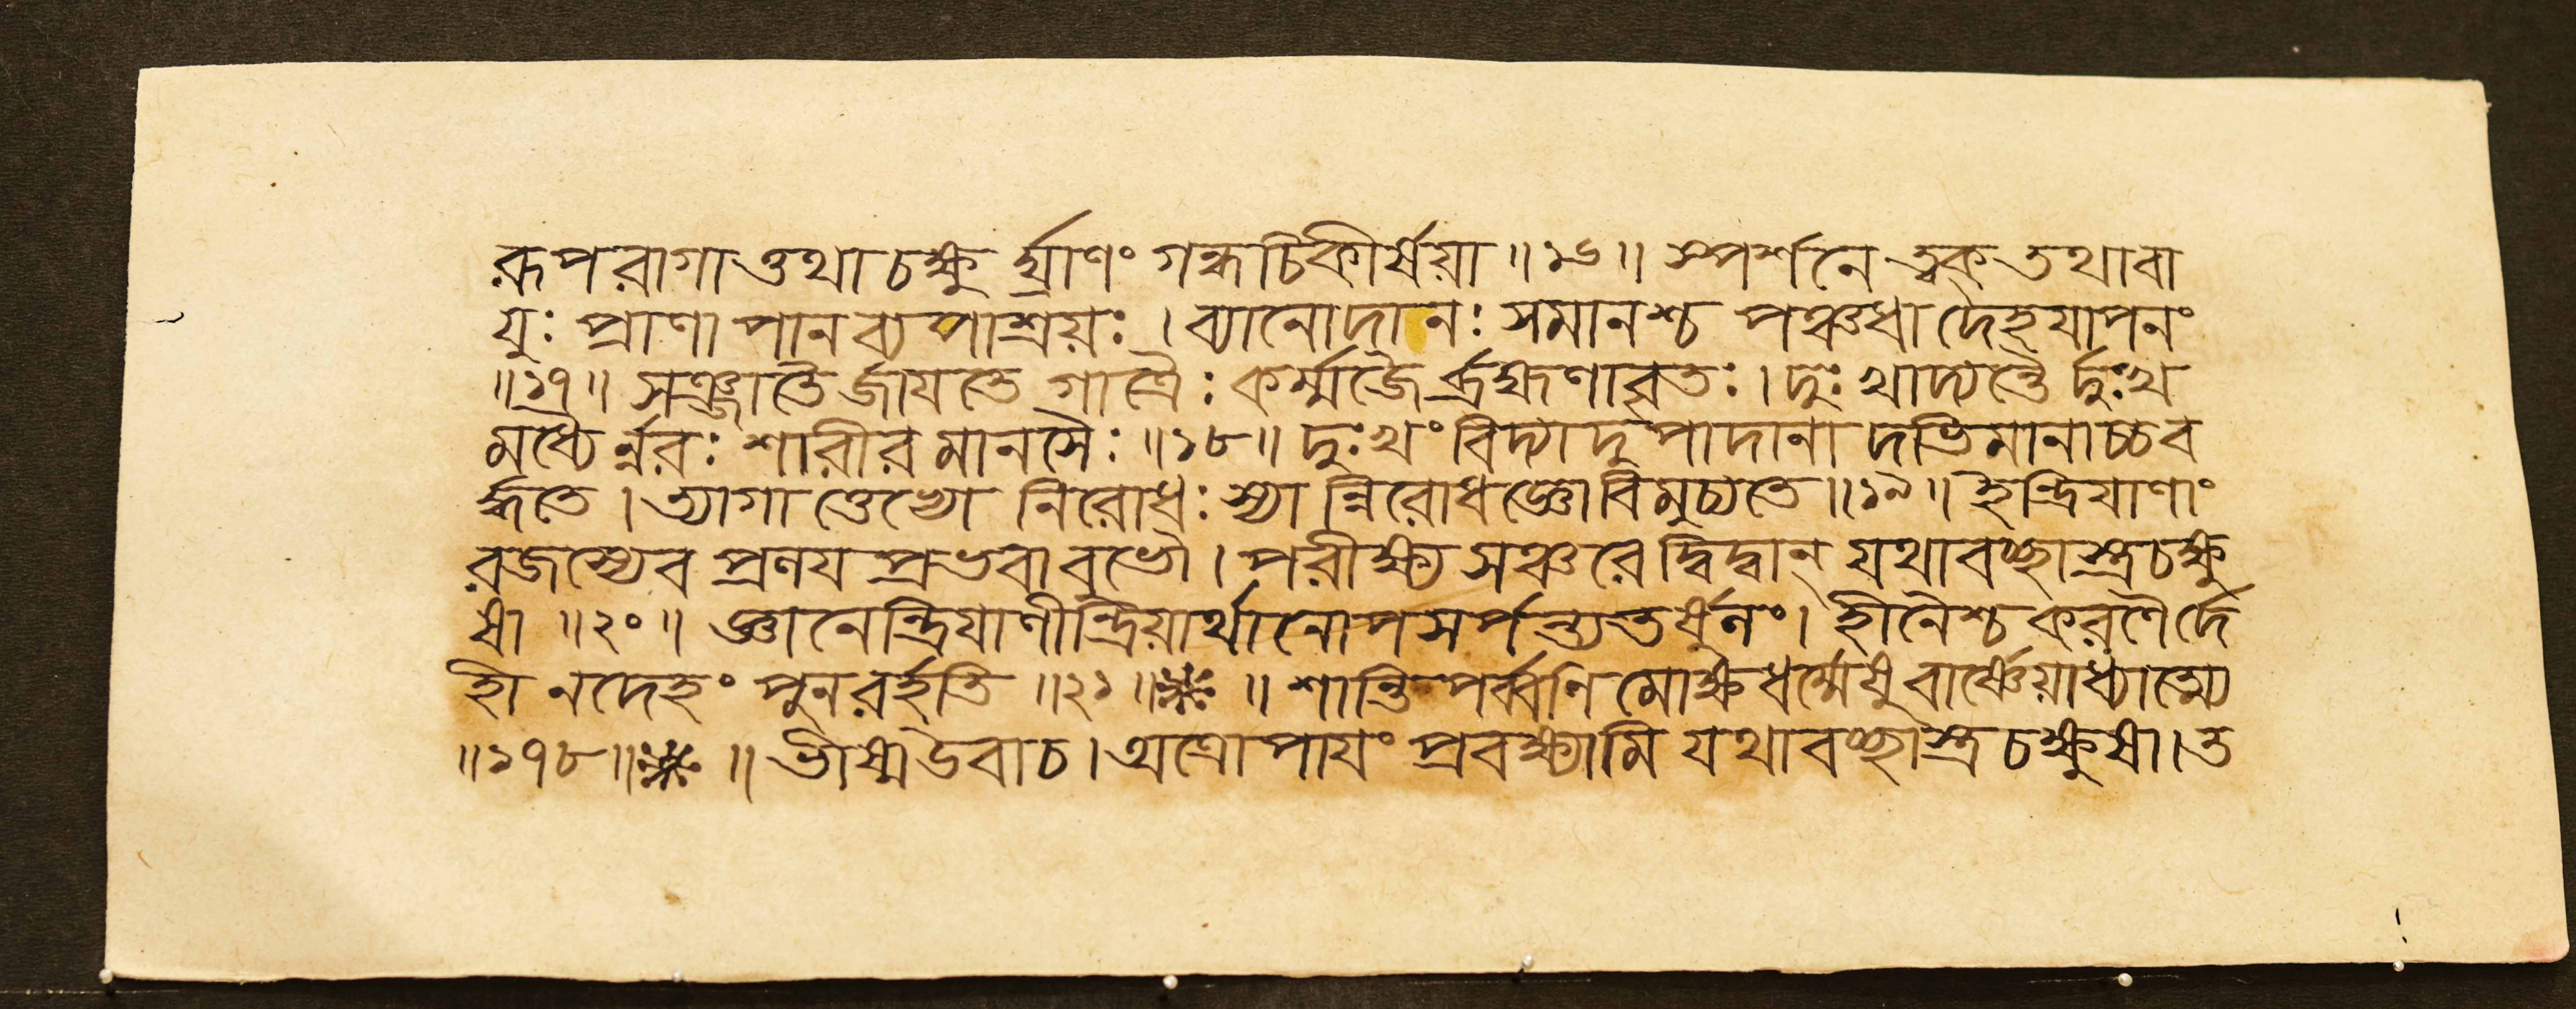 রূপরাগাত্তথা চক্ষু র্ঘ্রাণং গন্ধচিকীর্ষয়া ॥ ১৬ ॥ স্পর্শনে ত্বক্ তথা বা
যুঃ প্রাণাপানব্যপাশ্রয়ঃ । ব্যানোদানঃ সমানশ্চ পঞ্চধা দেহযাপনং
॥ ১৭ ॥ সঞ্জাতৈর্জায়তে গাত্রৈঃ কর্ম্মজৈর্ব্রহ্মণাবৃতঃ । দুঃখাদ্যন্তৈর্দুঃখ
মধ্যৈর্ন্নরঃ শারীরমানসৈঃ ॥ ১৮ ॥ দুঃখং বিদ্যাদুপাদানাদভিমানাচ্চব
র্দ্ধতে । ত্যাগাত্তেভ্যো নিরোধঃ স্যান্নিরোধজ্ঞো বিমুচ্যতে ॥ ১৯ ॥ ইন্দ্রিয়াণাং
রজস্যেব প্রণয়প্রভবাবুভৌ । পরীক্ষ্য সঞ্চরেদ্বিদ্বান্ যথাবচ্ছাস্ত্রচক্ষু
ষা ॥ ২০ ॥ জ্ঞানেন্দ্রিয়াণীন্দ্রিয়ার্থানোপসর্পন্ত্যতর্ষুনং । হীনৈশ্চ করণৈর্দে
হী ন দেহং পুনরর্হতি ॥ ২১ ॥ ॥ শান্তিপর্ব্বণি মোক্ষধর্ম্মেষু বার্ষ্ণেয়াধ্যাত্ম্যে
॥ ১৭৮ ॥ ॥ ভীষ্ম উবাচ । অত্রোপায়ং প্রবক্ষ্যামি যথাবচ্ছাস্ত্রচক্ষুষা । ত